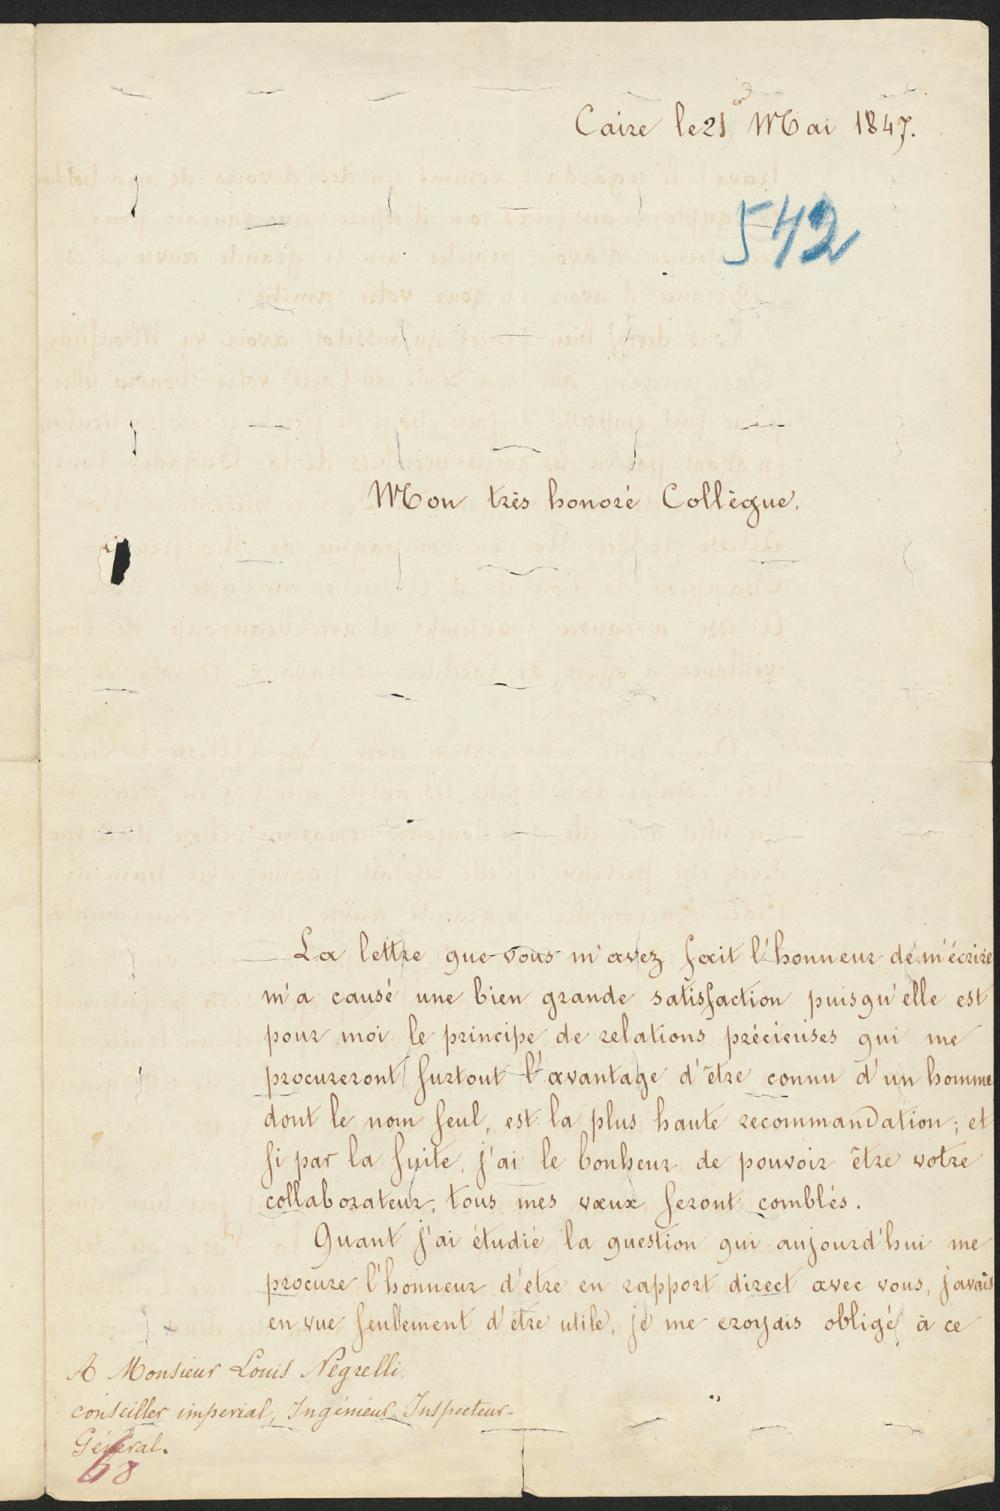 Caire le 21 Mai 1847.
542
Mon très honoré Collègue.
La lettre que vous m'avez fait l'honneur de m'écrire
m'a causé une bien grande satisfaction puisqu'elle est
pour moi le principe de relations précieuses qui me
procureront surtout l'avantage d'être connu d'un homme
dont le nom seul, est la plus haute recommandation; et
si par la suite, j'ai le bonheur de pouvoir être votre
collaborateur, tous mes vœux seront comblés.
Quant j'ai étudié la question qui aujourd'hui me
procure l'honneur d'etre en rapport direct avec vous, j'avais
en vue seulement d'être utile, je me croyais obligé à ce
A Monsieur Louis Négrelli.
conseiller imperial, Ingénieur Inspecteur-
Général.
68